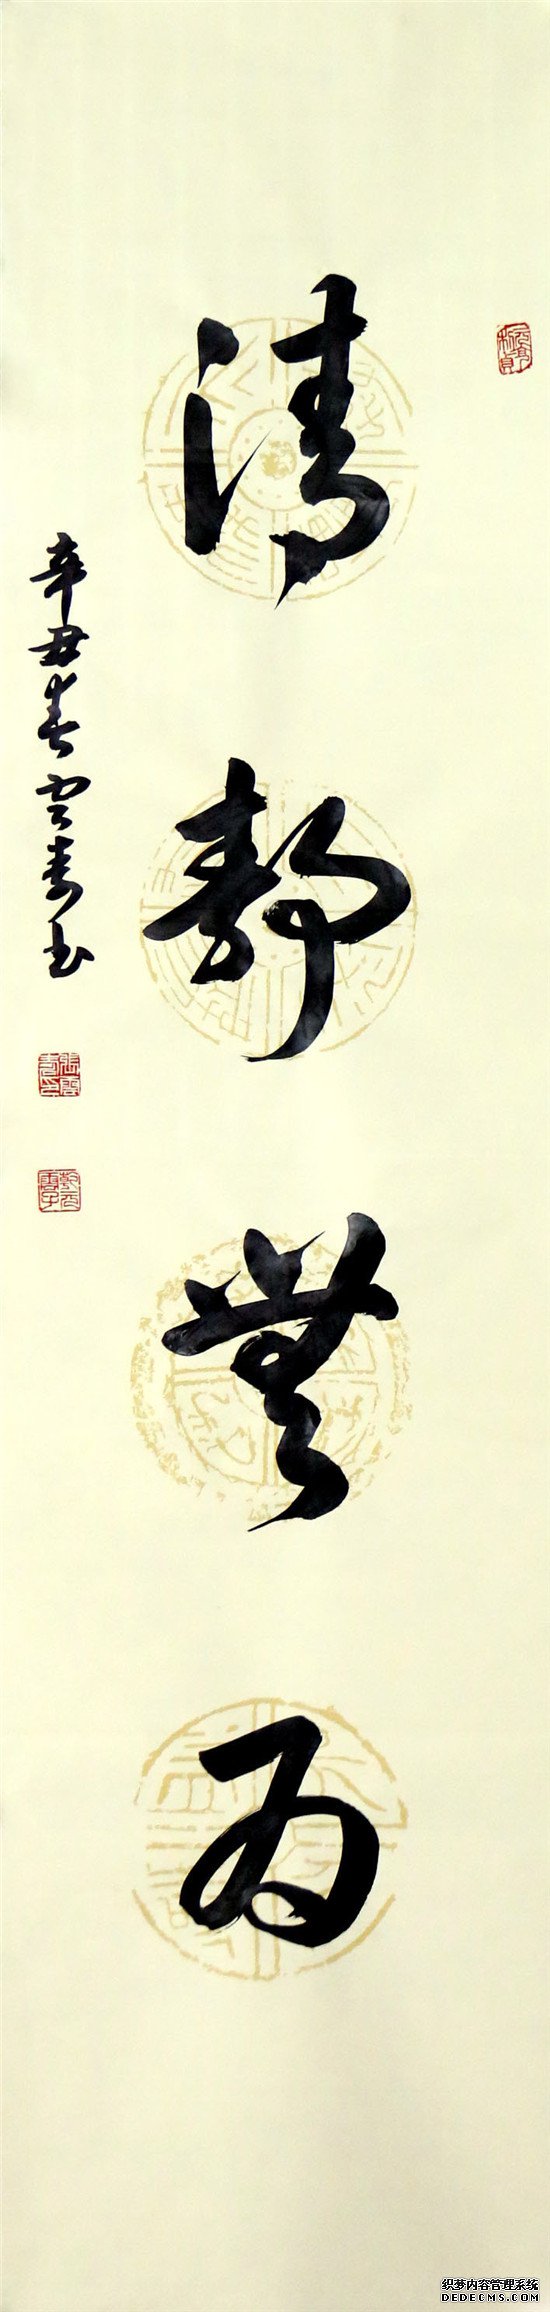 元亨利貞
清靜無為
辛丑春雲青書
织梦内容管理系统
DEDECMS.COM